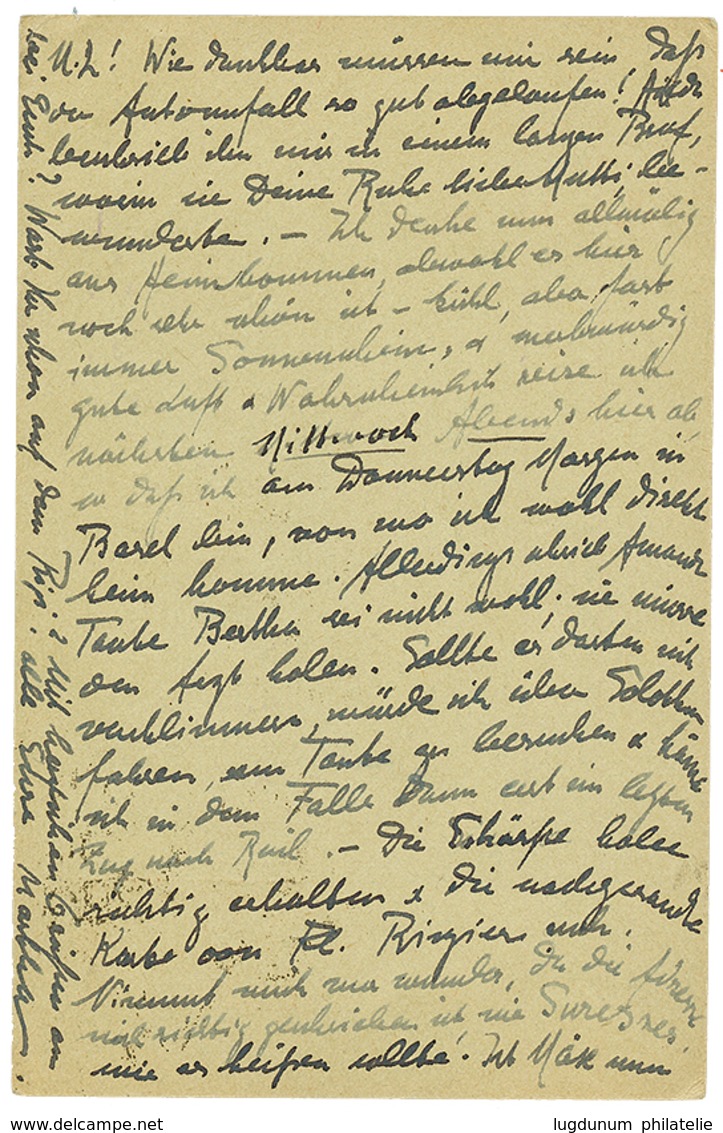 M. L! Wie dankbar müssen wir sein, daß
der Autounfall so gut abgelaufen!
beschrieb ihn mir in einem langen Brief,
worin sie Deine Ruhe liebe Mutti, be-
wunderte. — Ich denke nun allmälig
ans Heimkommen, obwohl es hier
noch sehr schön ist — kühl, aber fast
immer Sonnenschein, & merkwürdig
gute Luft & Wahrscheinlich reise ich
nächsten Mittwoch Abends hier ab,
so daß ich am Donnerstag Morgen in
Basel bin, von wo ich wohl direkt
heim komme. Allerdings schrieb
Tante Bertha sei nicht wohl, sie müsse
den Arzt holen. Sollte es dorten sich
verschlimmern, würde ich über Solothurn
fahren, um Tante zu besuchen & käme
ich in dem Falle dann erst im letzten
Zug nach — Die Schärpe habe
richtig erhalten & die nachgesandte
Karte von Fl. Ringier auch.
Nimmt mich nur wunder, ob die Adresse
nicht richtig geschrieben ist, wie Suresnes,
wie es heißen sollte! Ist Max nun
bei Euch? Wart Ihr schon auf dem Rigi? Mit herzlichen Grüßen an
alle Eure Martha.
lugdunum philatelie